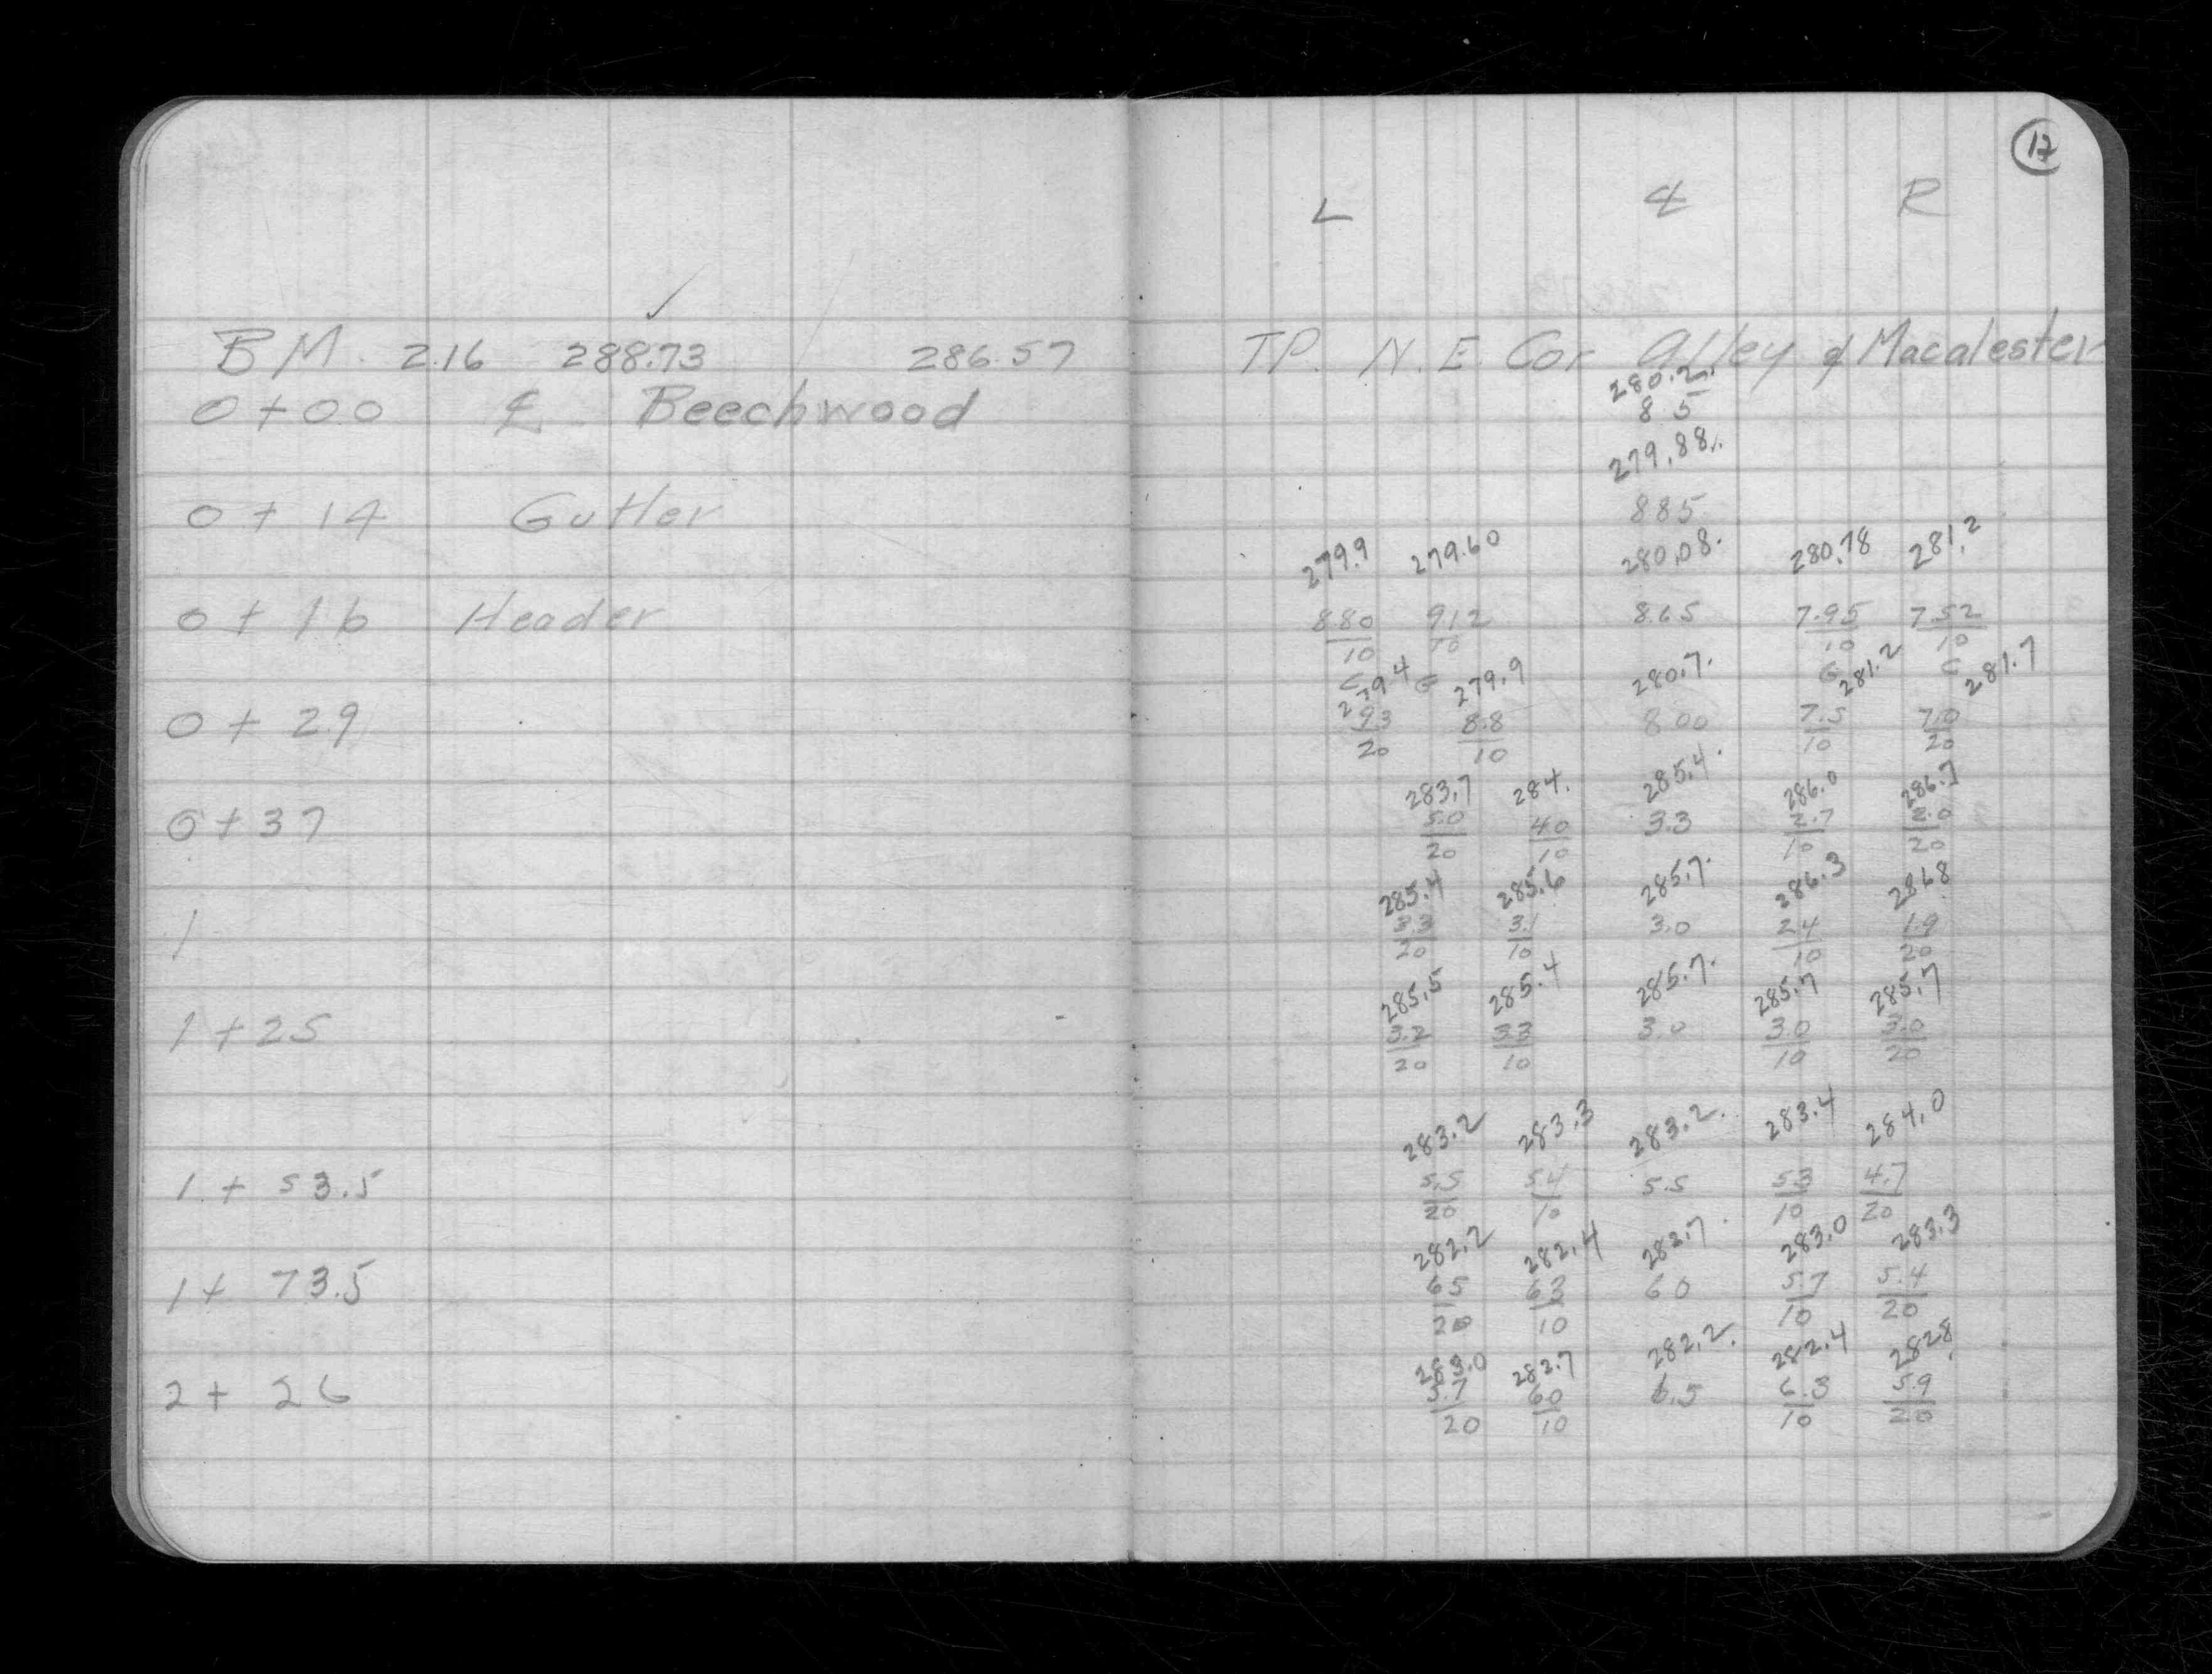 17
L ℄ R
BM. 2.16 ✓ 288.73 286.57 TP. N.E. Cor Alley & Macalester
280.2
0+00 ℄ Beechwood 8 5
279.88
0+14 Gutter 885
279.9 279.60 280.08. 280.78 281.2
0+16 Header 8.80 9.12 8.65 7.95 7.52
10 10 10 10
C G G C
279.4 279.9 280.7. 281.2 281.7
0+29 9.3 8.8 8.00 7.5 7.0
20 10 10 20
283.7 284. 285.4. 286.0 286.7
0+37 5.0 4.0 3.3 2.7 2.0
20 10 10 20
285.4 285.6 285.7. 286.3 286.8
1 3.3 3.1 3.0 2.4 1.9
20 10 10 20
285.5 285.4 285.7. 285.7 285.7
1+25 3.2 3.3 3.0 3.0 3.0
20 10 10 20
283.2 283.3 283.2. 283.4 284.0
1+53.5 5.5 5.4 5.5 5.3 4.7
20 10 10 20
282.2 282.4 282.7. 283.0 283.3
1+73.5 6.5 6.3 6.0 5.7 5.4
20 10 10 20
283.0 282.7 282.2. 282.4 282.8
2+26 5.7 6.0 6.5 6.3 5.9
20 10 10 20